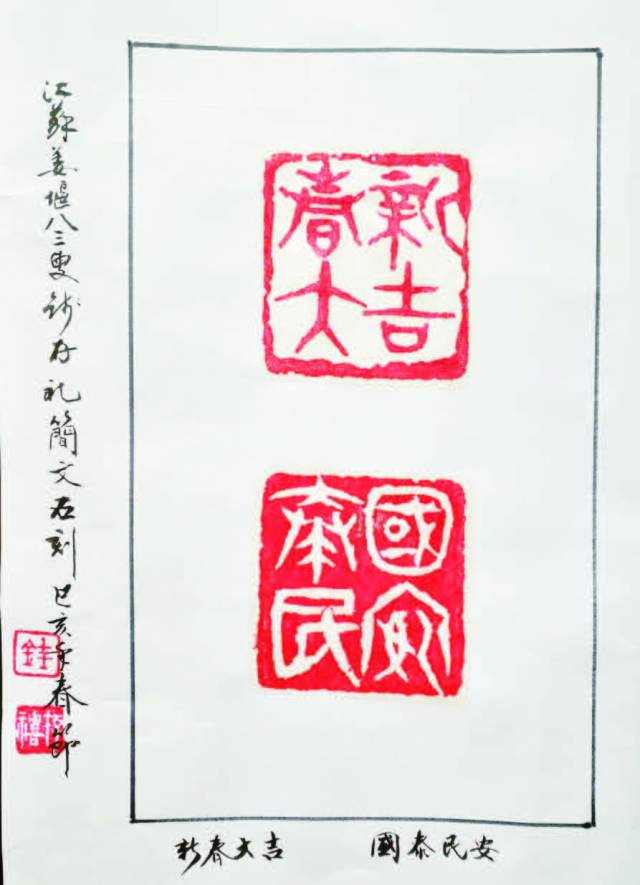 新春大吉
國泰民安
江蘇姜堰八三叟钱存礼簡文石刻 己亥年春節
新春大吉
國泰民安